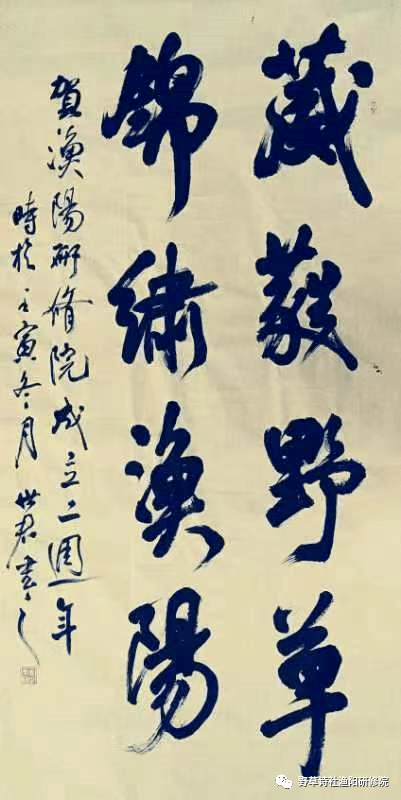 葳蕤野草
錦繡漁陽
賀漁陽研修院成立二週年
時於壬寅冬月 世君書之
野草诗社渔阳研修院